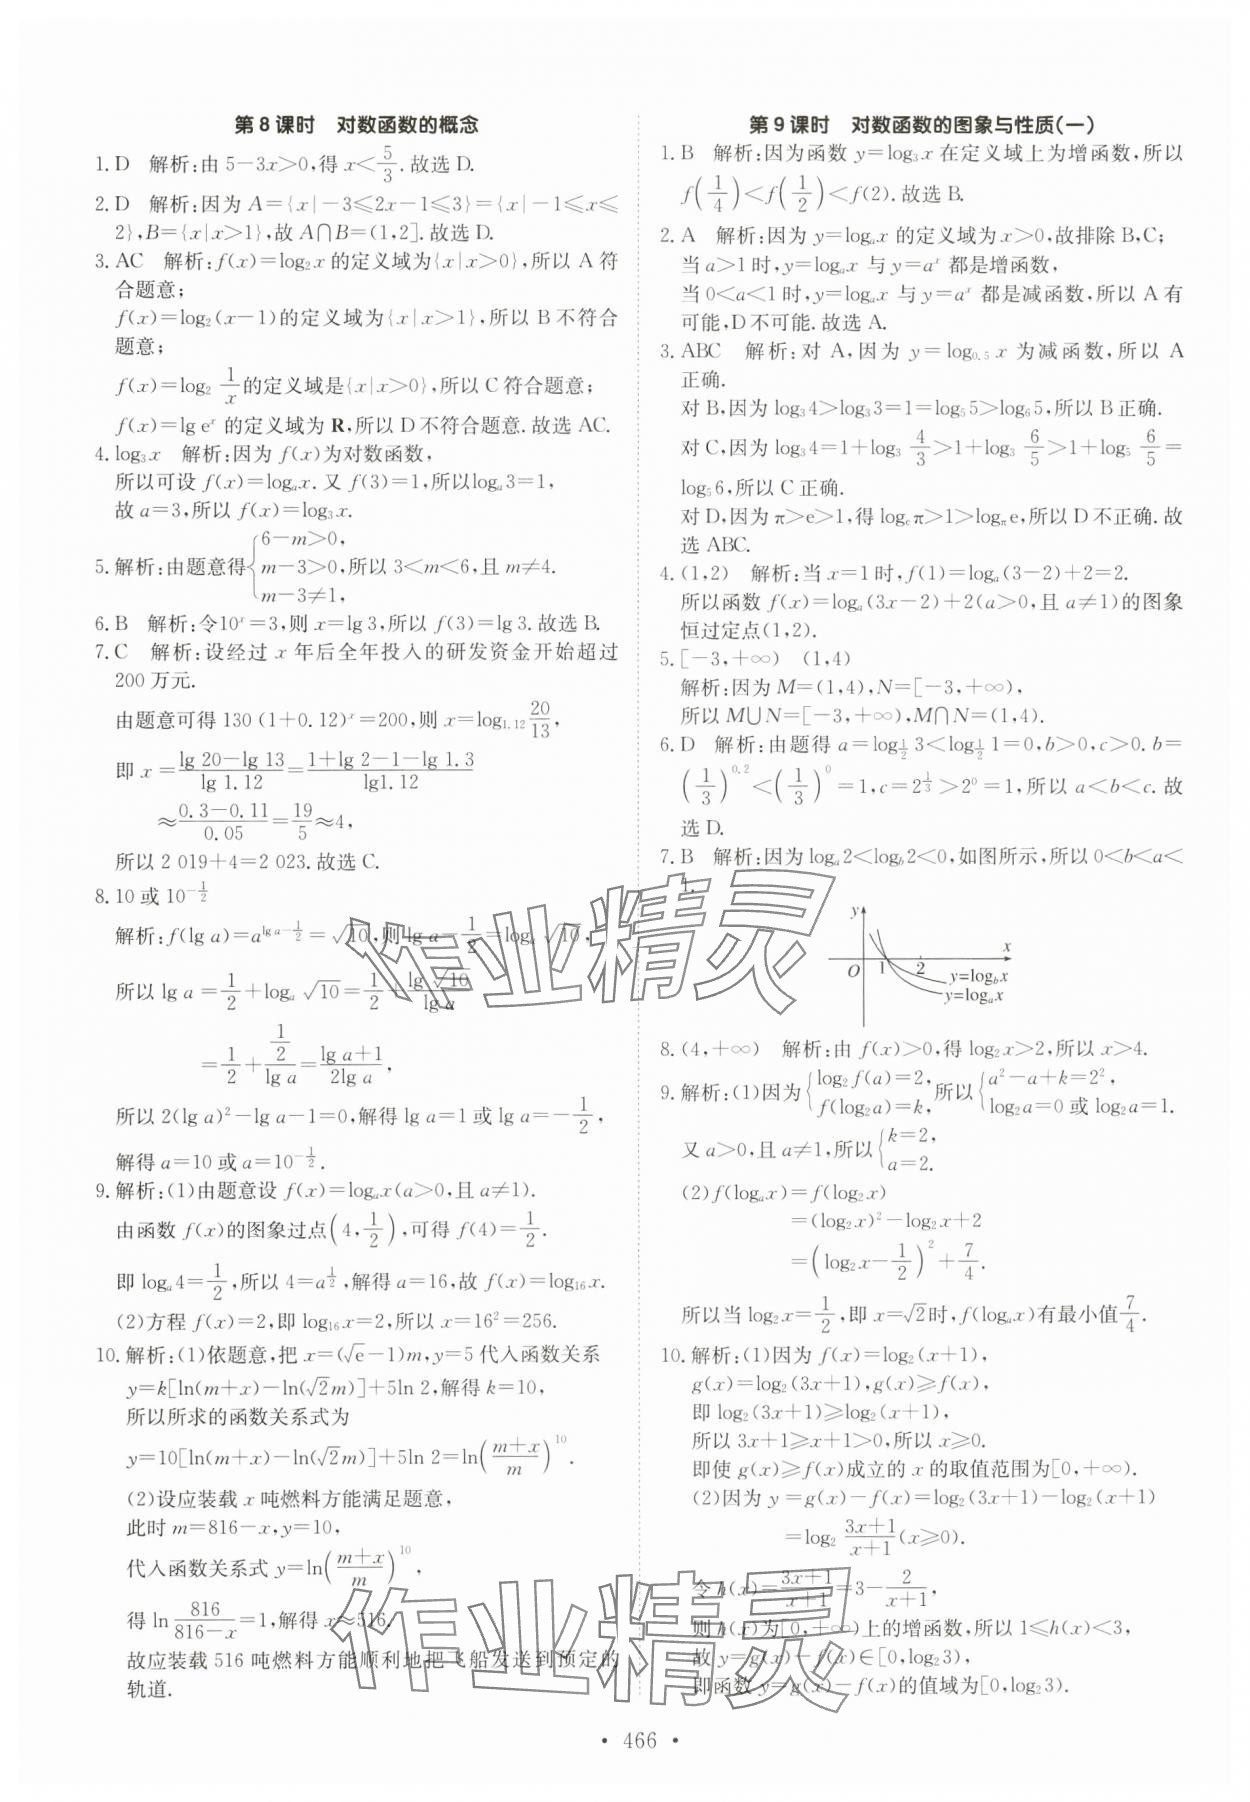 第8课时　对数函数的概念
1. D　解析:由 5－3x＞0,得 x＜5/3.故选 D.
2. D　解析:因为 A＝{x|－3≤2x－1≤3}＝{x|－1≤x≤
2},B＝{x|x＞1},故 A∩B＝(1,2].故选 D.
3. AC　解析:f(x)＝log₂x 的定义域为{x|x＞0},所以 A 符
合题意;
f(x)＝log₂(x－1)的定义域为{x|x＞1},所以 B 不符合
题意;
f(x)＝log₂ 1/x 的定义域是{x|x＞0},所以 C 符合题意;
f(x)＝lg eˣ 的定义域为 R,所以 D 不符合题意.故选 AC.
4. log₃x　解析:因为 f(x)为对数函数,
所以可设 f(x)＝logₐx.又 f(3)＝1,所以logₐ3＝1,
故 a＝3,所以 f(x)＝log₃x.
5. 解析:由题意得{6－m＞0, m－3＞0, m－3≠1,所以 3＜m＜6,且 m≠4.
6. B　解析:令10ˣ＝3,则 x＝lg 3,所以 f(3)＝lg 3.故选 B.
7. C　解析:设经过 x 年后全年投入的研发资金开始超过
200 万元.
由题意可得 130 (1＋0.12)ˣ＝200,则 x＝log_{1.12} 20/13,
即 x＝(lg 20－lg 13)/(lg 1.12)＝(1＋lg 2－1－lg 1.3)/(lg1.12)
≈(0.3－0.11)/0.05＝19/5≈4,
所以 2 019＋4＝2 023.故选 C.
8. 10 或 10^{－1/2}
解析:f(lg a)＝a^{lg a－1/2}＝√10,则 lg a－1/2＝logₐ√10,
所以 lg a＝1/2＋logₐ√10＝1/2＋(lg√10)/(lg a)
＝1/2＋(1/2)/(lg a)＝(lg a＋1)/(2lg a),
所以 2(lg a)²－lg a－1＝0,解得 lg a＝1 或 lg a＝－1/2,
解得 a＝10 或 a＝10^{－1/2}.
9. 解析:(1)由题意设 f(x)＝logₐx(a＞0,且 a≠1).
由函数 f(x)的图象过点(4,1/2),可得 f(4)＝1/2.
即 logₐ4＝1/2,所以 4＝a^{1/2},解得 a＝16,故 f(x)＝log₁₆x.
(2)方程 f(x)＝2,即 log₁₆x＝2,所以 x＝16²＝256.
10. 解析:(1)依题意,把 x＝(√e－1)m,y＝5 代入函数关系
y＝k[ln(m＋x)－ln(√2m)]＋5ln 2,解得 k＝10,
所以所求的函数关系式为
y＝10[ln(m＋x)－ln(√2m)]＋5ln 2＝ln((m＋x)/m)¹⁰.
(2)设应装载 x 吨燃料方能满足题意,
此时 m＝816－x,y＝10,
代入函数关系式 y＝ln((m＋x)/m)¹⁰,
得 ln 816/(816－x)＝1,解得 x≈516.
故应装载 516 吨燃料方能顺利地把飞船发送到预定的
轨道.
第9课时　对数函数的图象与性质(一)
1. B　解析:因为函数 y＝log₃x 在定义域上为增函数,所以
f(1/4)＜f(1/2)＜f(2).故选 B.
2. A　解析:因为 y＝logₐx 的定义域为 x＞0,故排除 B,C;
当 a＞1 时,y＝logₐx 与 y＝aˣ 都是增函数,
当 0＜a＜1 时,y＝logₐx 与 y＝aˣ 都是减函数,所以 A 有
可能,D 不可能.故选 A.
3. ABC　解析:对 A,因为 y＝log_{0.5} x 为减函数,所以 A
正确.
对 B,因为 log₃4＞log₃3＝1＝log₅5＞log₆5,所以 B 正确.
对 C,因为 log₃4＝1＋log₃ 4/3＞1＋log₃ 6/5＞1＋log₅ 6/5＝
log₅6,所以 C 正确.
对 D,因为 π＞e＞1,得 logₑπ＞1＞log_π e,所以 D 不正确.故
选 ABC.
4. (1,2)　解析:当 x＝1 时,f(1)＝logₐ(3－2)＋2＝2.
所以函数 f(x)＝logₐ(3x－2)＋2(a＞0,且 a≠1)的图象
恒过定点(1,2).
5. [－3,＋∞)　(1,4)
解析:因为 M＝(1,4),N＝[－3,＋∞),
所以 M∪N＝[－3,＋∞),M∩N＝(1,4).
6. D　解析:由题得 a＝log_{1/2}3＜log_{1/2}1＝0,b＞0,c＞0.b＝
(1/3)^{0.2}＜(1/3)⁰＝1,c＝2^{1/3}＞2⁰＝1,所以 a＜b＜c.故
选 D.
7. B　解析:因为 logₐ2＜log_b2＜0,如图所示,所以 0＜b＜a＜
1.
y
x
O 1 2
y=log_b x
y=logₐx
8. (4,＋∞)　解析:由 f(x)＞0,得 log₂x＞2,所以 x＞4.
9. 解析:(1)因为{log₂f(a)＝2, f(log₂a)＝k,所以{a²－a＋k＝2², log₂a＝0 或 log₂a＝1.
又 a＞0,且 a≠1,所以{k＝2, a＝2.
(2)f(logₐx)＝f(log₂x)
＝(log₂x)²－log₂x＋2
＝(log₂x－1/2)²＋7/4.
所以当 log₂x＝1/2,即 x＝√2时,f(logₐx)有最小值7/4.
10. 解析:(1)因为 f(x)＝log₂(x＋1),
g(x)＝log₂(3x＋1),g(x)≥f(x),
即 log₂(3x＋1)≥log₂(x＋1),
所以 3x＋1≥x＋1＞0,所以 x≥0.
即使 g(x)≥f(x)成立的 x 的取值范围为[0,＋∞).
(2)因为 y＝g(x)－f(x)＝log₂(3x＋1)－log₂(x＋1)
＝log₂ (3x＋1)/(x＋1)(x≥0).
令 h(x)＝(3x＋1)/(x＋1)＝3－2/(x＋1),
则 h(x)为[0,＋∞)上的增函数,所以 1≤h(x)＜3,
故 y＝g(x)－f(x)∈[0,log₂3),
即函数 y＝g(x)－f(x)的值域为[0,log₂3).
作业精灵
作业精灵
· 466 ·